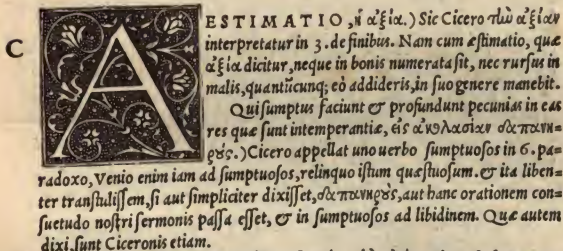 C
AESTIMATIO, ἡ ἀξία.) Sic Cicero τὴν ἀξίαν
interpretatur in 3. de finibus. Nam cum æstimatio, quæ
ἀξία dicitur, neque in bonis numerata sit, nec rursus in
malis, quantũcunq; eò addideris, in suo genere manebit.
Qui sumptus faciunt & profundunt pecunias in eas
res quæ sunt intemperantiæ, εἰς ἀκολασίαν δαπανη=
ρούς.) Cicero appellat uno uerbo sumptuosos in 6. pa=
radoxo, Venio enim iam ad sumptuosos, relinquo istum quæstuosum. & ita liben=
ter transtulissem, si aut simpliciter dixisset, δαπανηρούς, aut hanc orationem con=
suetudo nostri sermonis passa esset, & in sumptuosos ad libidinem. Quæ autem
dixi, sunt Ciceronis etiam.